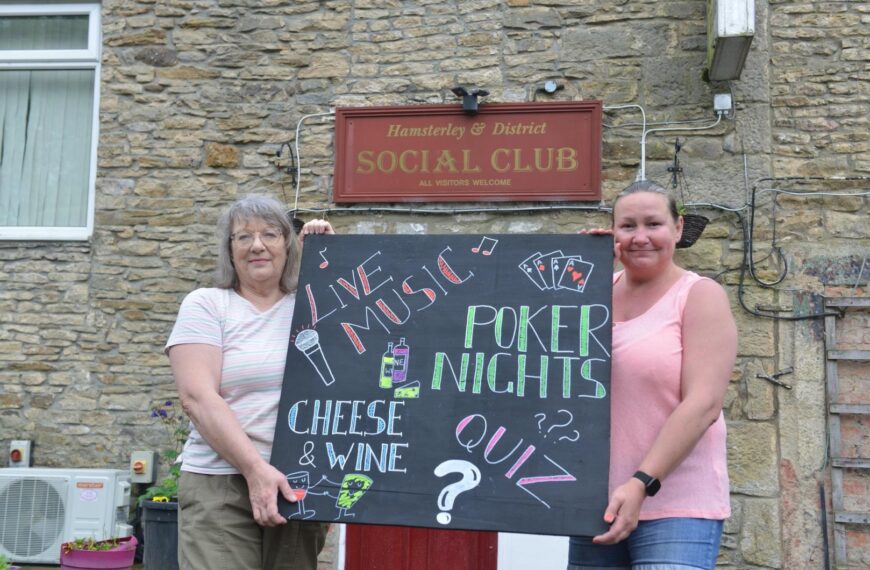 Hamsterley & District
SOCIAL CLUB
ALL VISITORS WELCOME
LIVE
MUSIC
POKER
NIGHTS
CHEESE
& WINE
QUIZ
???
?